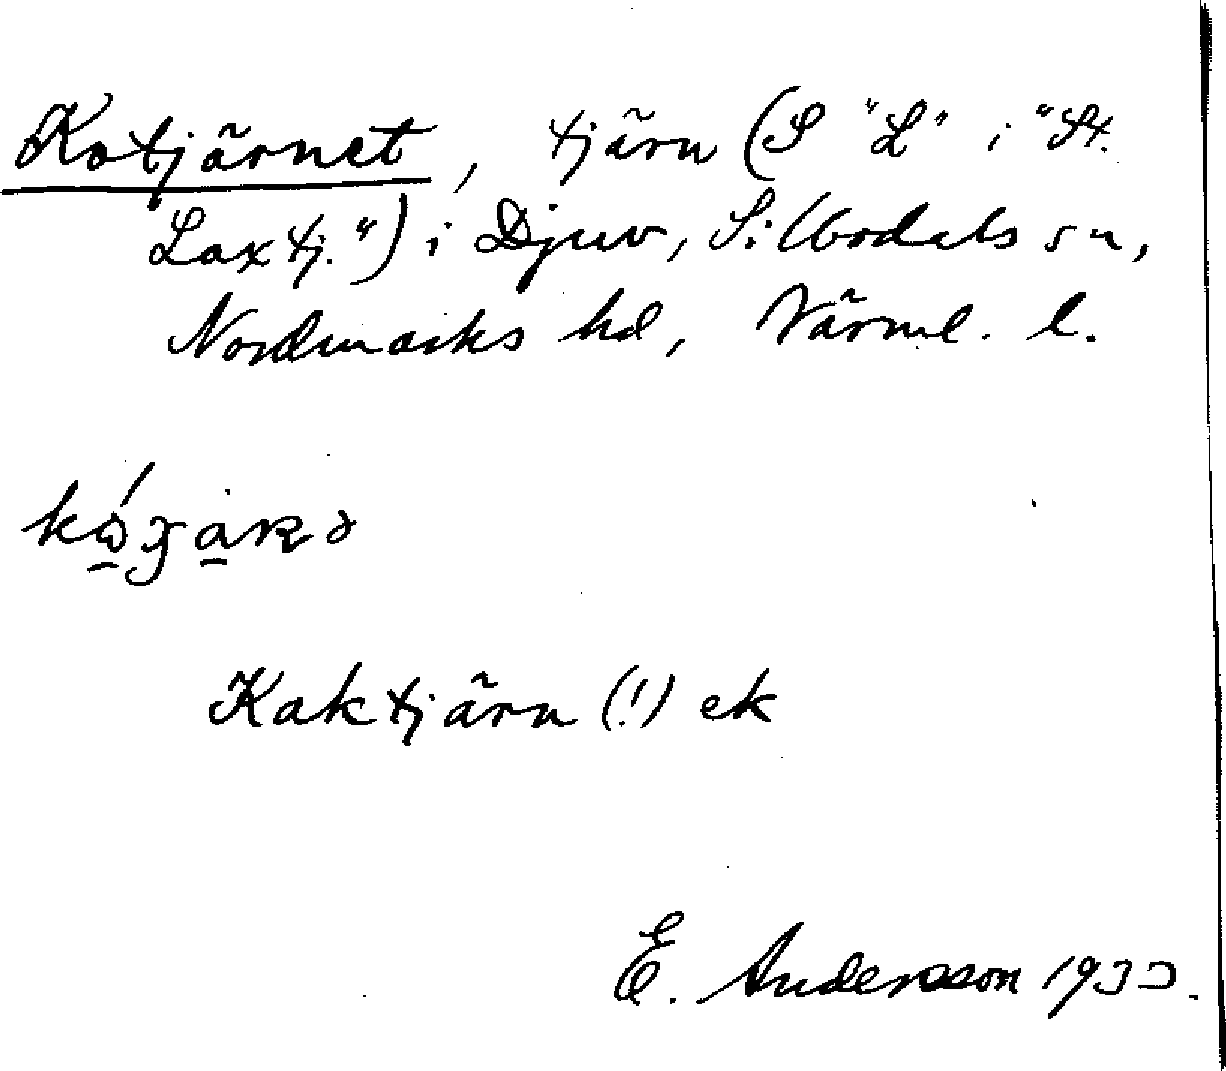 Kotjärnet, tjärn (S "L" i "St.
Laxtj.") i Djuv, Silbodals sn,
Nordmarks hd, Värml. l.
Kaktjärn (!) ek
E. Andersson 1933.